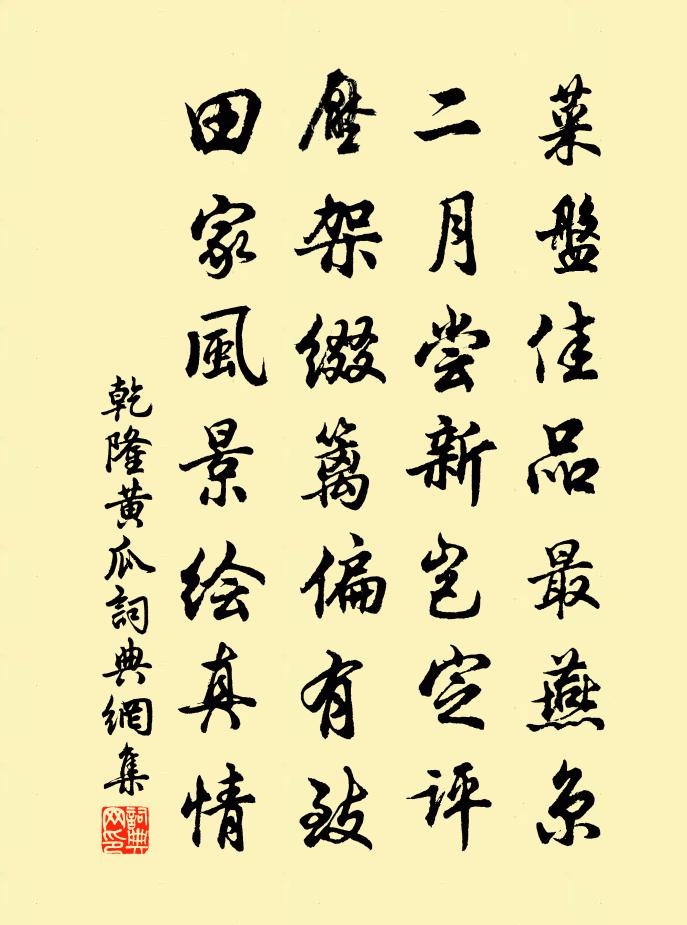 菜盤佳品最燕京
二月尝新岂定评
壓架綴篱偏有致
田家風景绘真情
乾隆黄瓜詞典網集
詞典網印